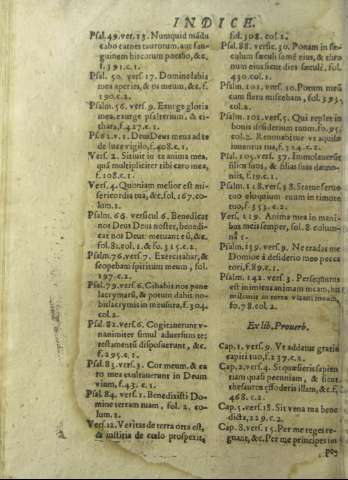 INDICE.
Psal. 49. ver. 13. Nunquid mādu
cabo carnes taurorum, aut san-
guinem hircorum potabo, &c,
f. 391. c. 1.
Psal. 50. vers 17. Domine labia
mea aperies, & os meum, &c. f.
190. c. 2.
Psalm. 56. vers. 9. Exurge gloria
mea, exurge psalterium, & ci-
thara, f. 427. c. 1.
Ps. 62. v. 1. Deus Deus meus ad te
de luce vigilo, f. 408. c. 1.
Vers. 2. Sitiuit in te anima mea,
quā multipliciter tibi caro mea,
f. 108. c. 1.
Vers. 4. Quoniam melior est mi-
sericordia tua, &c. fol. 167. co-
lum. 2.
Psalm. 66. versicul. 6. Benedicat
nos Deus Deus noster, benedi-
cat nos Deus: metuant eū, &c.
fol. 81. col. 1. & fo. 315. c. 2.
Psalm. 76. vers. 7. Exercitabar, &
scopebam spiritum meum, fol.
297. c. 2.
Psal. 79. vers. 6. Cibabis nos pane
lacrymarū, & potum dabis no-
bis lacrymis in mensura, f. 304.
col. 2.
Psal. 82. vers. 6. Cogitauerunt v-
nanimiter simul aduersum te:
testamentū disposuerunt, &c.
f. 295. c. 1.
Psal. 83. vers. 3. Cor meum, & ca
ro mea exultauerunt in Deum
vium, f. 43. c. 1.
Psal. 84. vers. 1. Benedixisti Do-
mine terram tuam, fol. 2. co-
lum. 1.
Vers. 12. Veritas de terra orta est,
& iustitia de cœlo prospexit,
fol. 308. col. 1.
Psal. 88. versic. 30. Ponam in sæ-
culum sæculi semē eius, & thro
num eius sicut dies cæculi, fol.
430. col. 1.
Psalm. 101. vers. 10. Potum meū
cum fletu miscebam, fol. 303,
col. 2.
Psalm. 102. vers. 5. Qui replet in
bonis desiderium tuum, fo. 95.
col. 2. Renouabitur vt aquilæ
iuuentus tua, f. 324. c. 2.
Psal. 105. vers. 37. Immolauerūt
filios suos, & filias suas dæmo-
niis, f. 19. c. 1.
Psalm. 118. vers. 38. Statue seruo
tuo eloquium tuum in timore
tuo, f. 352. c. 2.
Vers. 119. Anima mea in mani-
bus meis semper, fol. 8. colum-
na 1.
Psalm. 139. vers. 9. Ne tradas me
Domine à desiderio meo pecca
tori, f. 89. c. 1.
Psalm. 142. vers. 3. Persequutus
est inimicus animam meam, hu
miliauit in terra vitam meam,
fo. 78. col. 2.
Ex lib. Prouerb.
Cap. 1. vers. 9. Vt addatur gratia
capiti tuo, f. 237. c. 2.
Cap. 2. vers. 4. Si quæsieris sapien
tiam quasi pecuniam, & sicut
thesauros effoderis illam, &c. f.
468. c. 2.
Cap. 5. vers. 18. Sit vena tua bene
dicta, 229. c. 2.
Cap. 8. vers. 15. Per me reges re-
gnant, &c. Per me principes im